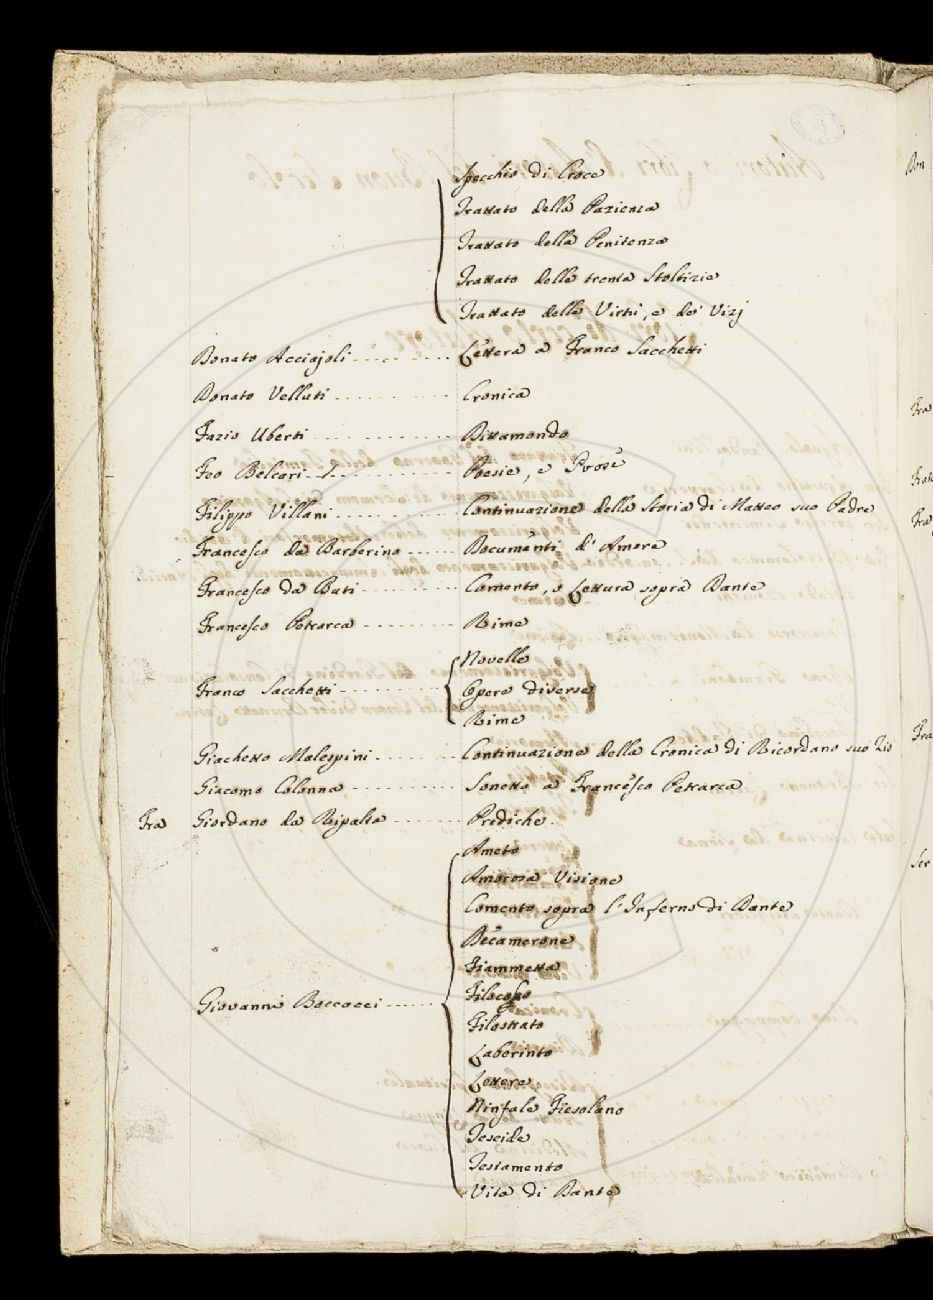 Specchio di Croce
Trattato della Pazienza
Trattato della Penitenza
Trattato delle trenta Stoltizie
Trattato delle Virtù, e dei Vizj
Donato Acciajoli ........ Lettera a Franco Sacchetti
Donato Velluti .......... Cronica
Fazio Uberti .......... Dittamondo
Feo Belcari .......... Poesie, e Prose
Filippo Villani .......... Continuazione della Storia di Matteo suo Padre
Francesco da Barberino ...... Documenti d'Amore
Francesco da Buti ........ Comento, o Lettura sopra Dante
Francesco Petrarca ........ Rime
Novelle
Franco Sacchetti .......... Opere diverse
Rime
Giachetto Malespini ....... Continuazione della Cronica di Ricordano suo Zio
Giacomo Colonna .......... Sonetto a Francesco Petrarca
Fra Giordano da Ripalta ....... Prediche
Ameto
Amorosa Visione
Comento sopra l'Inferno di Dante
Decamerone
Fiammetta
Filocopo
Giovanni Boccacci ......
Filostrato
Laberinto
Lettere
Ninfale Fiesolano
Teseide
Testamento
Vita di Dante
Don
Fra
Fra
Fra
Ser